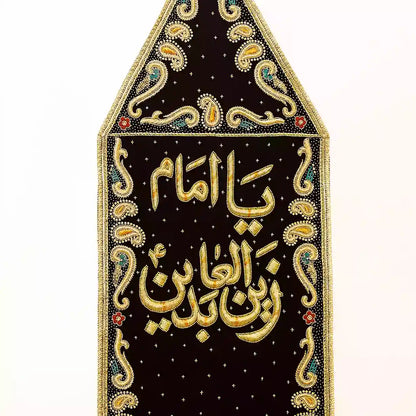 يا امام
زين العابدين ع